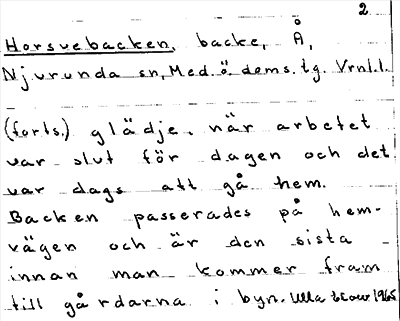 2
Horsvebacken, backe, Å,
Njurunda sn, Med. ö. doms. tg. Vrnl. l.
(forts.) glädje, när arbetet
var slut för dagen och det
var dags att gå hem.
Backen passerades på hem-
vägen och är den sista
innan man kommer fram
till gårdarna i byn. Ulla 1965